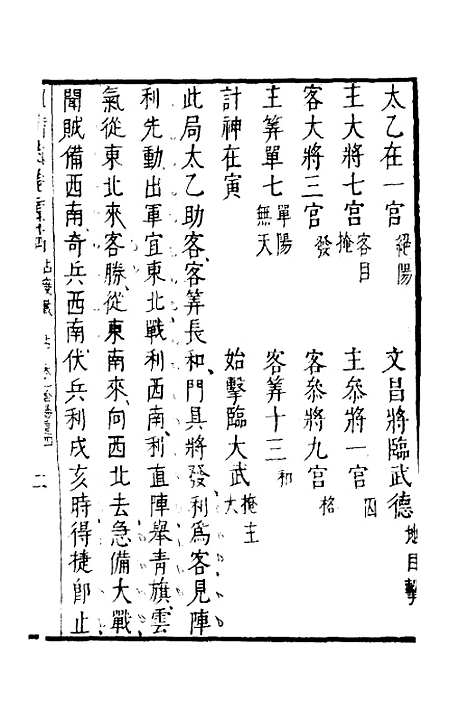 太乙在一宮絕陽 文昌將臨武德地目擊
主大將七宮客目掩 主參將一宮囚
客大將三宮發 客參將九宮格
主筭單七單陽無天 客筭十三和
計神在寅 始擊臨大武掩主大
此局太乙助客客筭長和門具將發利為客見陣
利先動出軍宜東北戰利西南利直陣舉青旗雲
氣從東北來客勝從東南來向西北去急備大戰
聞賊備西南奇兵西南伏兵利戌亥時得捷即止
占度載 占